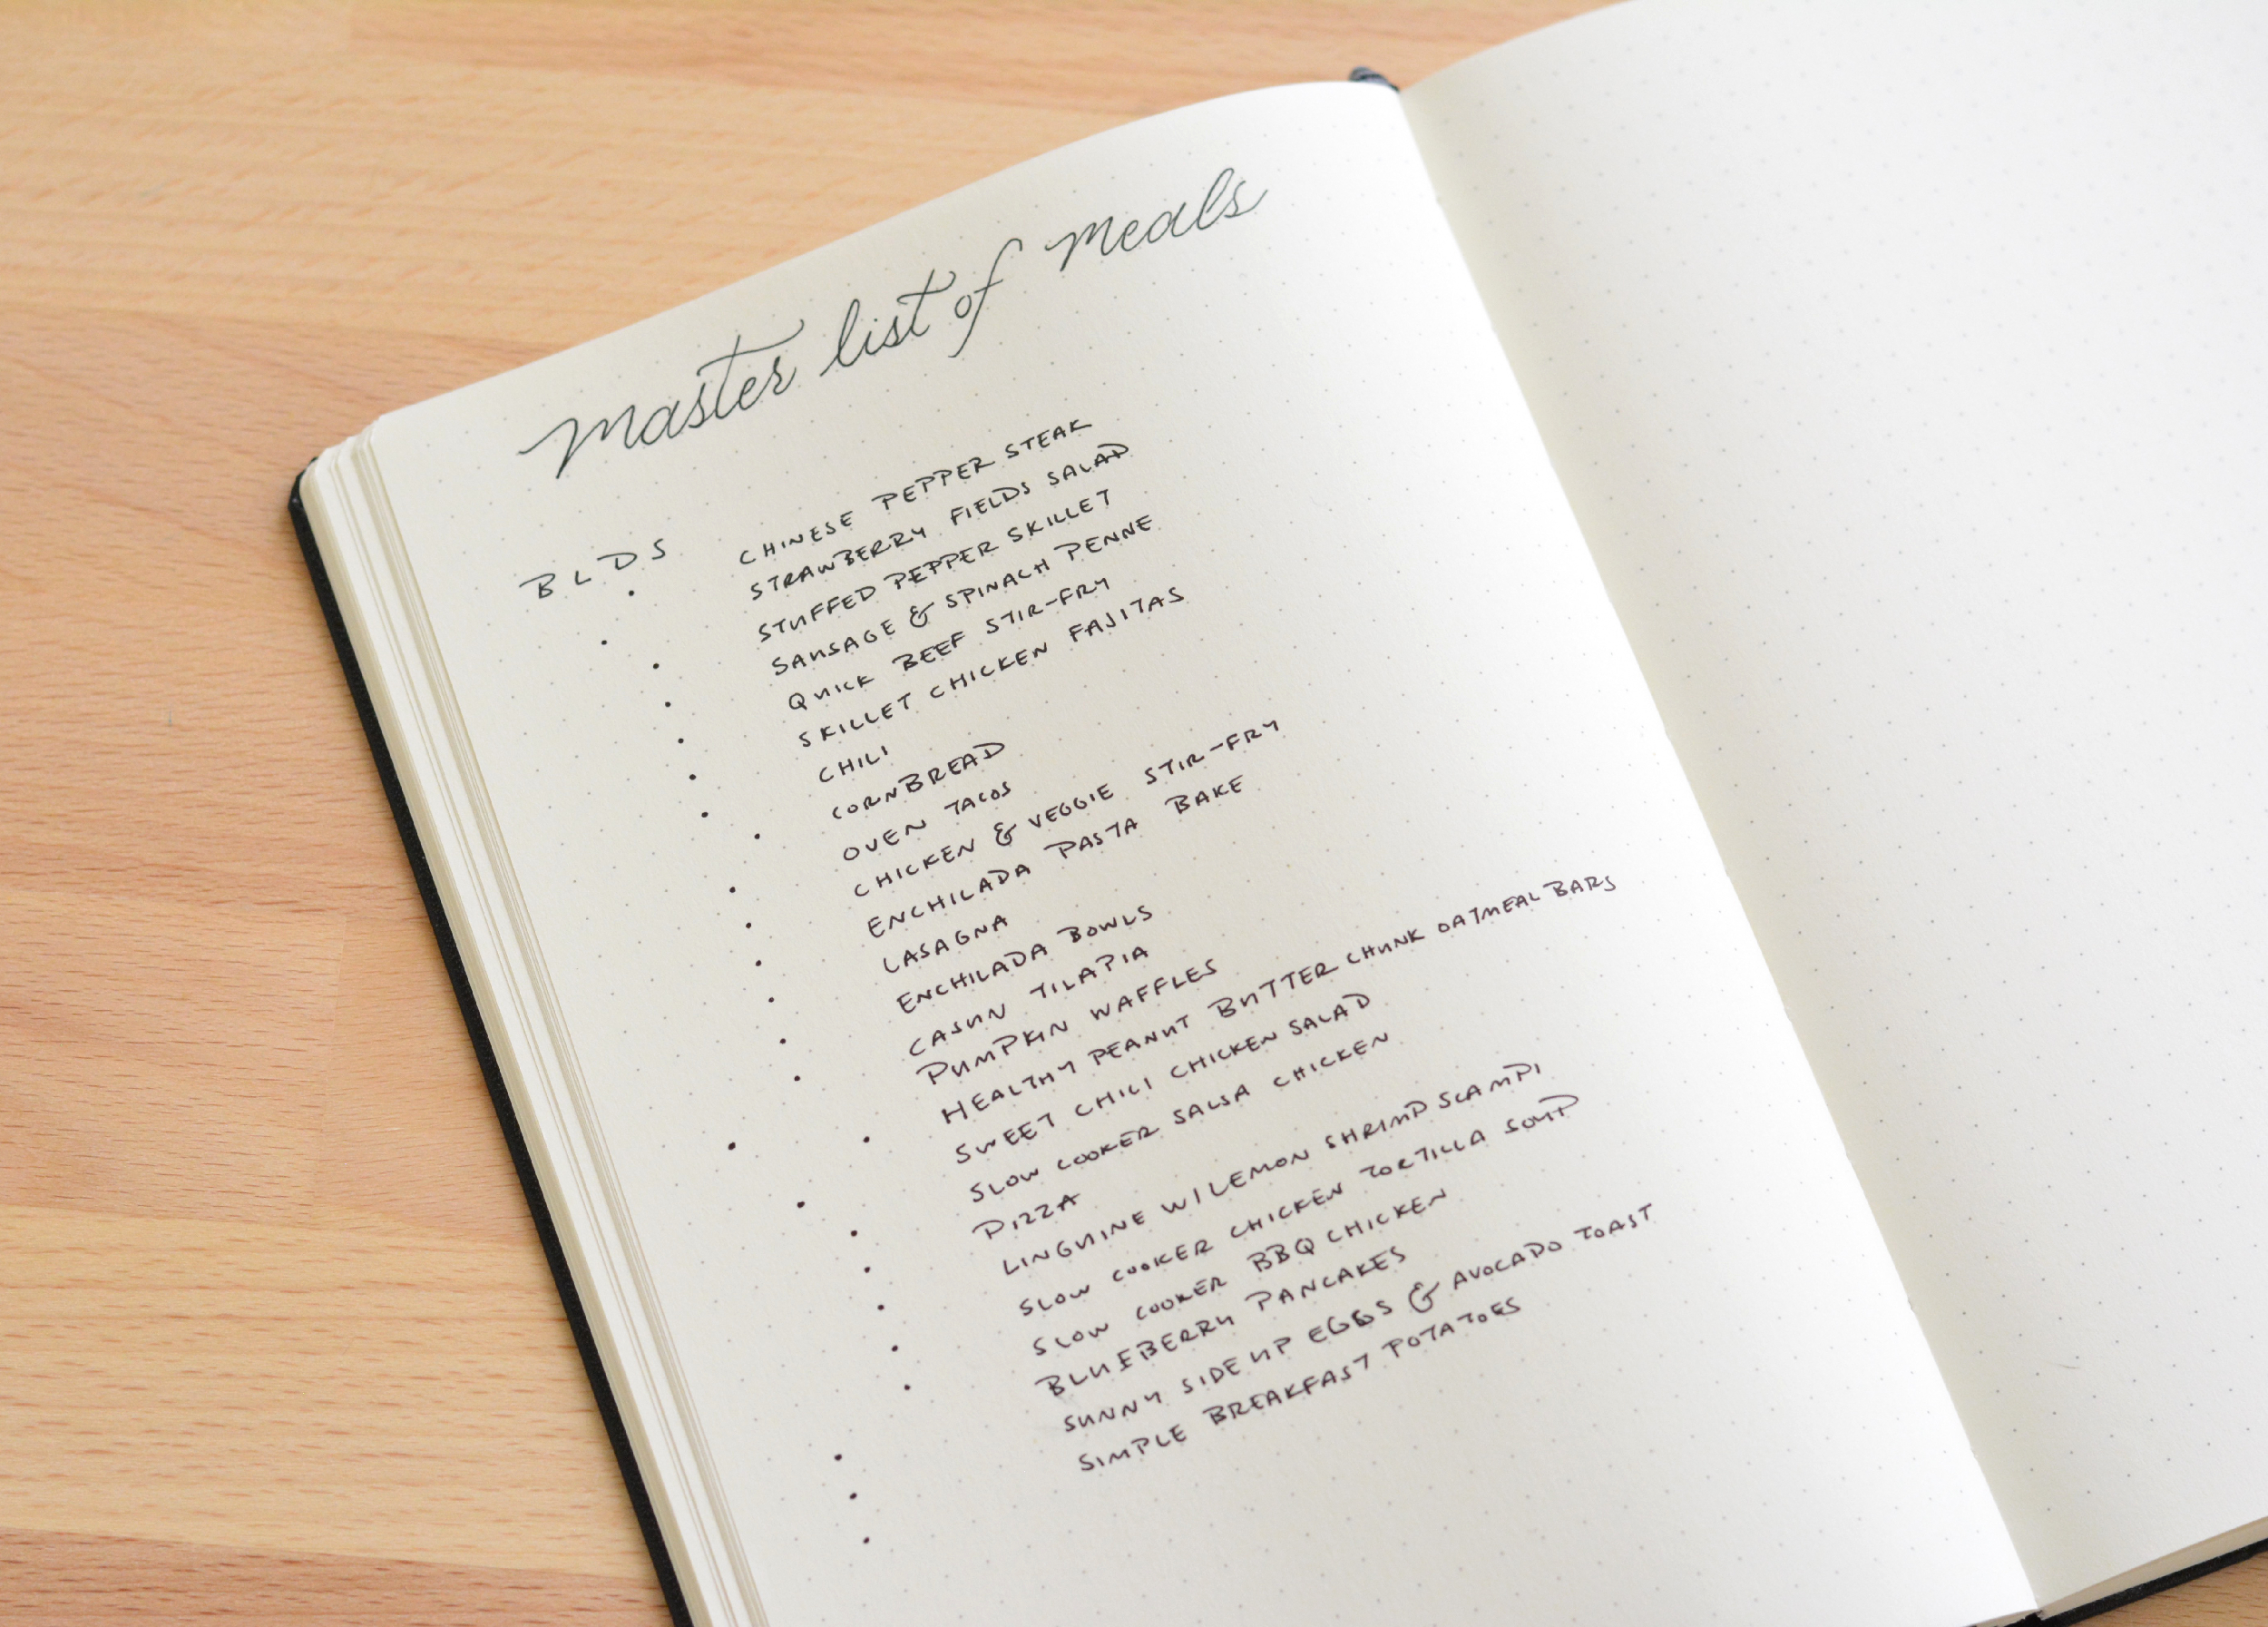 master list of meals
B L D S
CHINESE PEPPER STEAK
STRAWBERRY FIELDS SALAD
STUFFED PEPPER SKILLET
SAUSAGE & SPINACH PENNE
QUICK BEEF STIR-FRY
SKILLET CHICKEN FAJITAS
CHILI
CORNBREAD
OVEN TACOS
CHICKEN & VEGGIE STIR-FRY
ENCHILADA PASTA BAKE
LASAGNA
ENCHILADA BOWLS
CAJUN TILAPIA
PUMPKIN WAFFLES
HEALTHY PEANUT BUTTER CHUNK OATMEAL BARS
SWEET CHILI CHICKEN SALAD
SLOW COOKER SALSA CHICKEN
PIZZA
LINGUINE W/ LEMON SHRIMP SCAMPI
SLOW COOKER CHICKEN TORTILLA SOUP
SLOW COOKER BBQ CHICKEN
BLUEBERRY PANCAKES
SUNNY SIDE UP EGGS & AVOCADO TOAST
SIMPLE BREAKFAST POTATOES